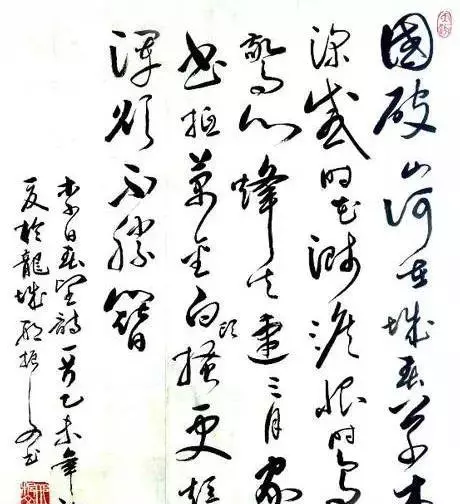 國破山河在城春草木
深感時花濺淚恨別鳥
驚心烽火連三月家
書抵萬金白頭搔更短
渾欲不勝簪
春望詩一首乙未年
夏於龍城